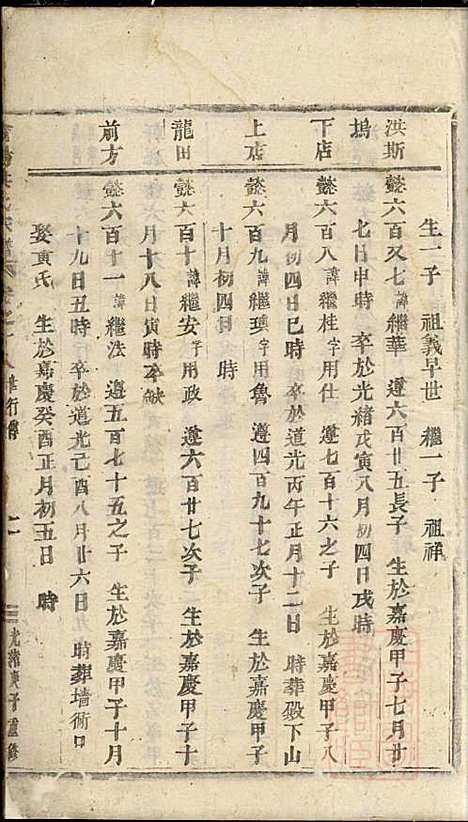 生一子 祖義早世 繼一子 祖祥
洪斯塢 懿六百又七 諱繼華 遵六百廿五長子 生於嘉慶甲子七月廿
七日申時 卒於光緒戊寅八月初四日戌時
下店 懿六百八 諱繼桂 字用仕 遵七百十六之子 生於嘉慶甲子八
月初四日巳時 卒於道光丙午正月十二日 時葬殿下山
上店 懿六百九 諱繼璵 字用魯 遵四百九十七次子 生於嘉慶甲子
十月初四日 時
龍田 懿六百十 諱繼安 字用政 遵六百廿七次子 生於嘉慶甲子十
月十八日寅時卒缺
前方 懿六百十一 諱繼法 遵五百七十五之子 生於嘉慶甲子十月
十九日丑時 卒於道光己酉八月廿六日 時葬墻衕口
娶黄氏 生於嘉慶癸酉正月初五日 時
華行傳 光緒庚子重修